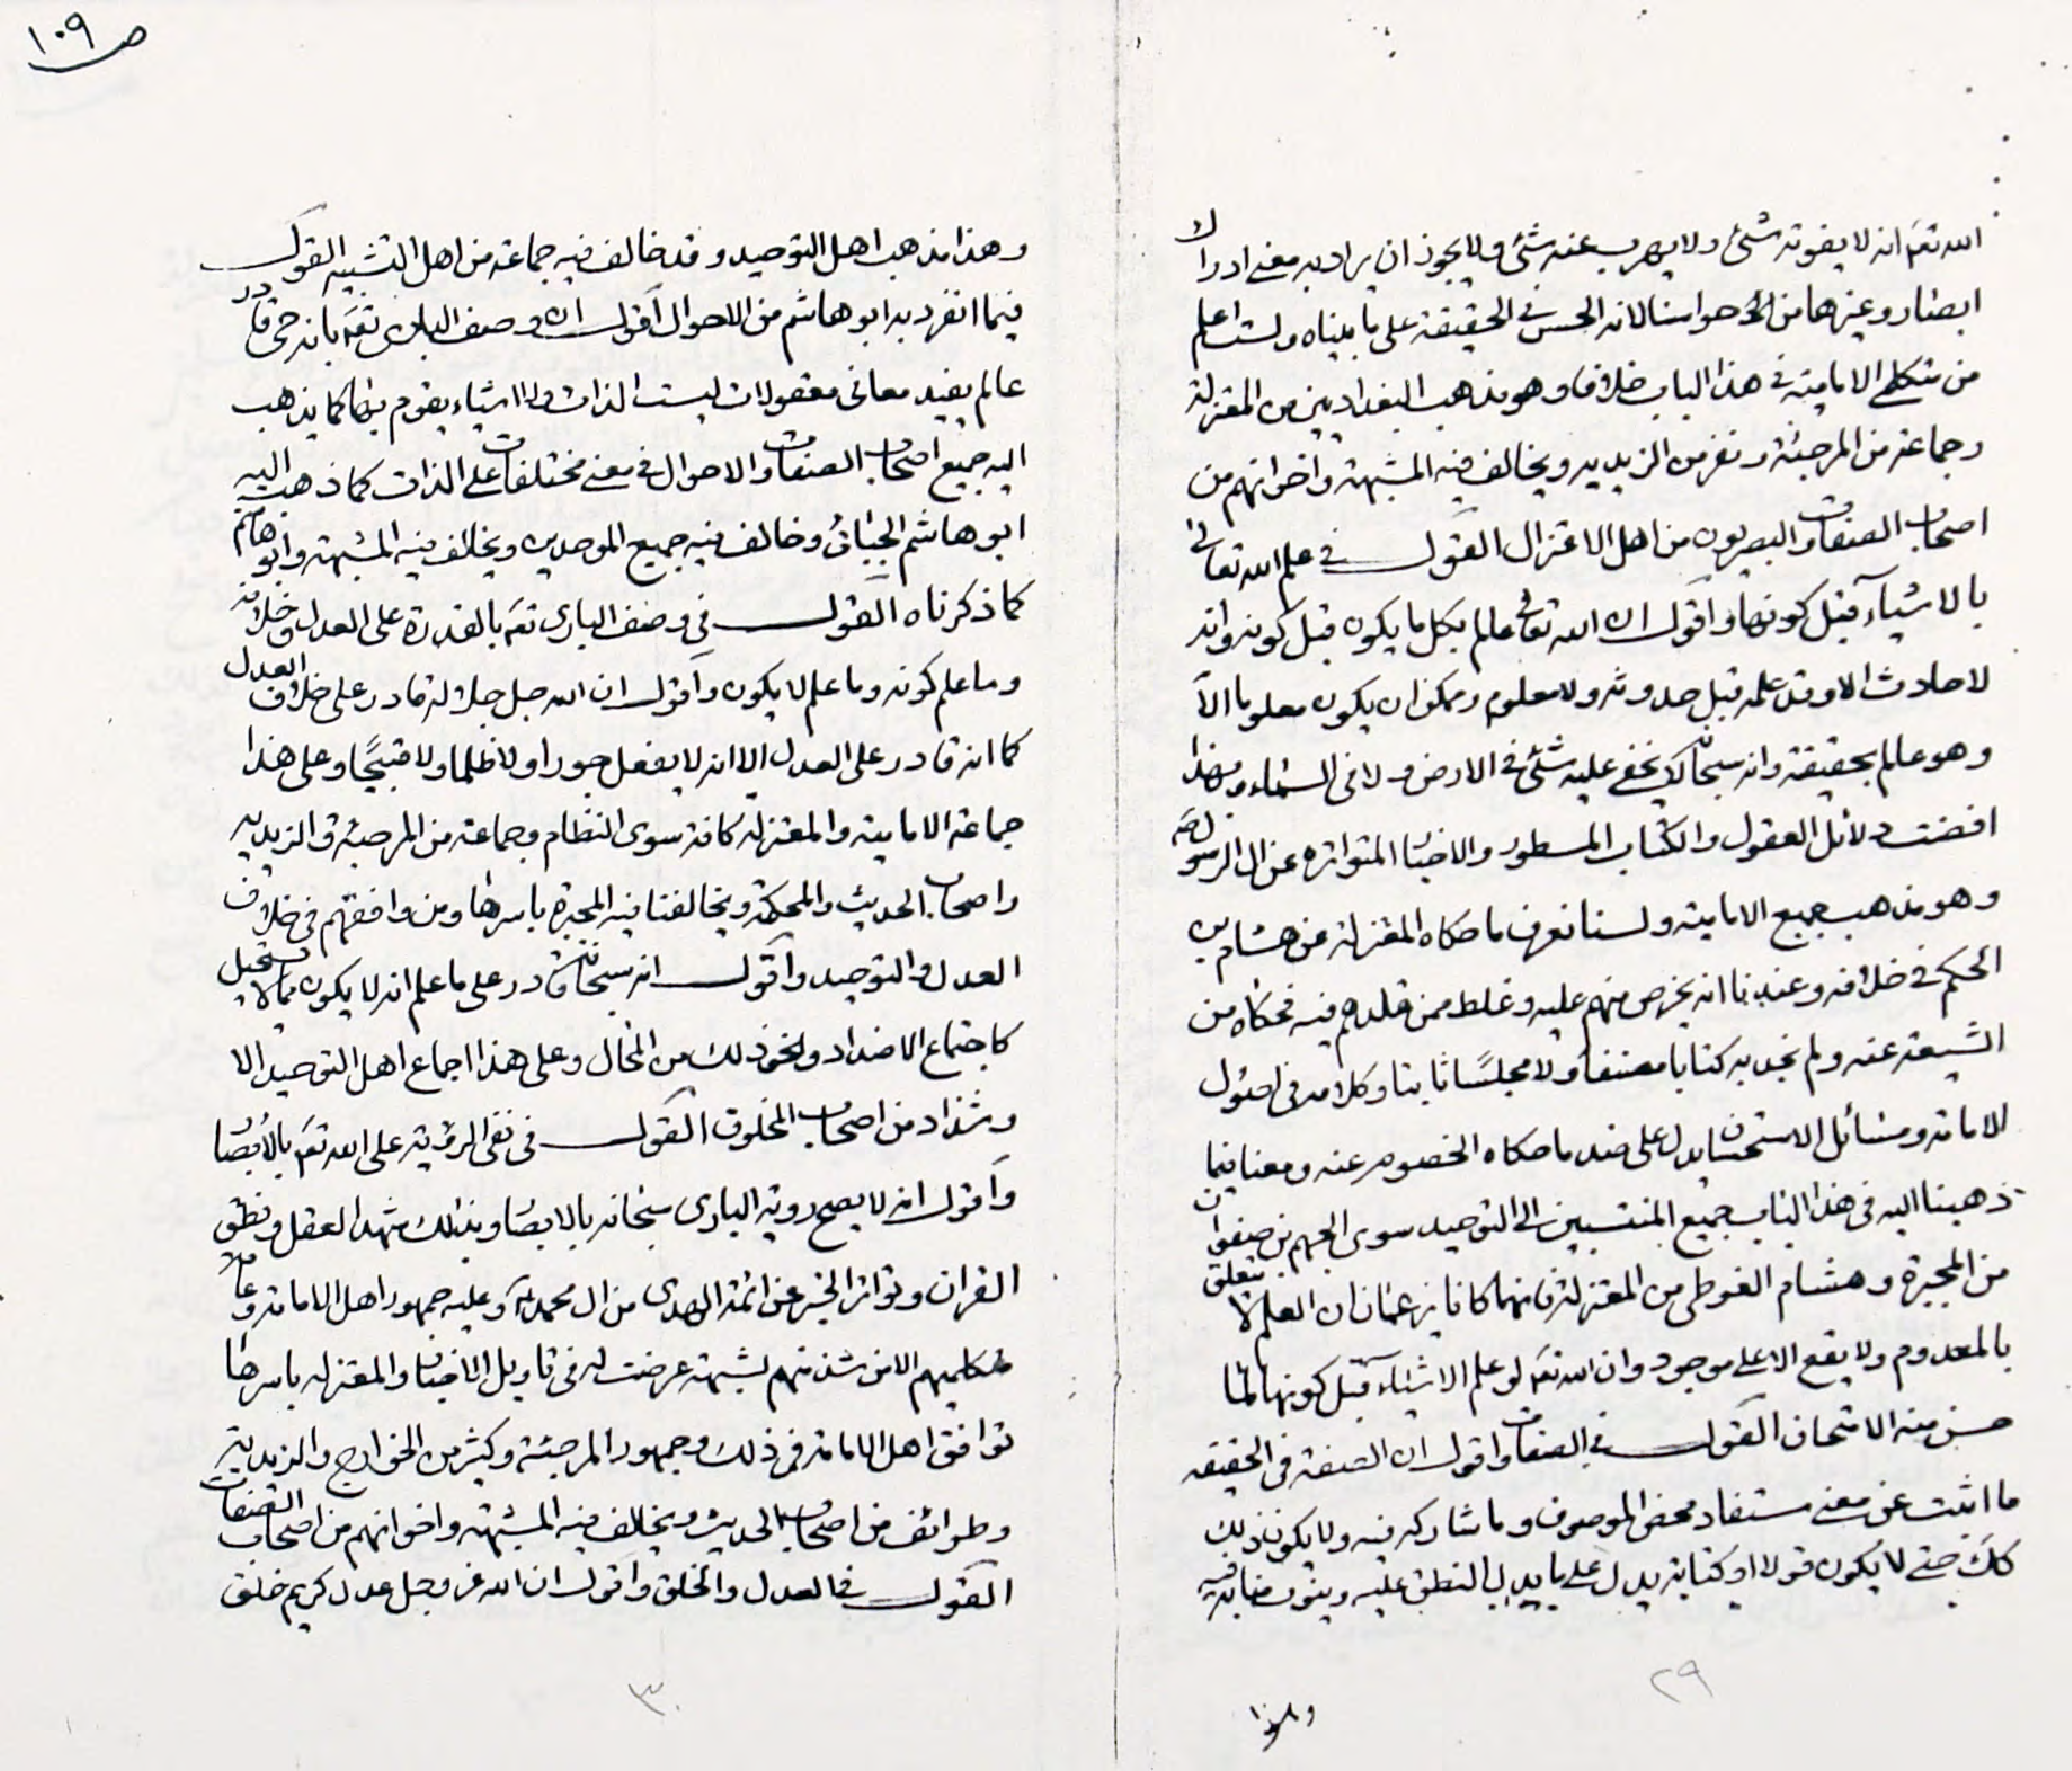 الله تعۤ انه لا يفوته شئ ولا يهرب عنه شئ ولا يجوز ان يراد به معنى ادراك
ابصار وغيرها من حواسنا لانه الحس في الحقيقة على ما بيناه ولست اعلم
من متكلمي الامامية في هذا الباب خلافا وهو مذهب البغداديين من المعتزلة
وجماعة من المرجئة ونفر من الزيديه ويخالف فيه المشبهة واخوانهم من
اصحاب الصفات والبصريون من اهل الاعتزال القول في علم الله تعالى
بالاشيآء قبل كونها واقول ان الله تعالى عالم بكل ما يكون قبل كونه وانه
لا حادث الا وقد علمه قبل حدوثه ولا معلوم وممكن ان يكون معلوما الا
وهو عالم بحقيقته وانه سبحانه لا يخفى عليه شئ في الارض ولا في السماء وبهذا
اقضت دلائل العقول والكتاب المسطور والاخبار المتواتره عن ال الرسول صۤ
وهو مذهب جميع الامامية ولسنا نعرف ما حكاه المعتزلة عن هشام بن
الحكم في خلافه وعندنا انه تخرص منهم عليه وغلط ممن قلدهم فيه فحكاه من
الشيعة عنه ولم نجد به كتابا مصنفا ولا مجلسًا ثابتا وكلامه في اصول
الامامة ومسائل الامتحان يدل على ضد ما حكاه الخصوم عنه ومعنا فيما
ذهبنا اليه في هذا الباب جميع المنتسبين الى التوحيد سوى الجهم بن صفوان
من المجبرة وهشام الفوطى من المعتزلة فانهما كانا يزعمان ان العلم لا يتعلق
بالمعدوم ولا يقع الا على موجود وان الله تعۤ لو علم الاشيآء قبل كونها لما
حسن منه الامتحان القول في الصفات واقول ان الصفة في الحقيقه
ما انبت عن معنى مستفاد محض الموصوف وما شاركه فيه ولا يكون ذلك
كك حتى لا يكون قولا او كتابة يدل على ما يدل النطق عليه وينوب منابه فيه
٢٩
وهذا
ص ١٠٩
وهذا مذهب اهل التوحيد وقد خالف فيه جماعة من اهل التشبيه القول
فيما انفرد به ابو هاشم من الاحوال اقول ان وصف البارى تعۤ بانه حى قادر
عالم يفيد معانى معقولات ليست الذات ولا اشياء يقوم بها كما يذهب
اليه جميع اصحاب الصفات والاحوال في معنى مختلفات على الذات كما ذهب اليه
ابو هاشم الجبائى وخالف فيه جميع الموحدين ويخالف فيه المشبهة وابو هاشم
كما ذكرناه القول في وصف البارى تعۤ بالقدرة على العدل وخلافه
وما علم كونه وما علم لا يكون واقول ان الله جل جلاله قادر على خلاف العدل
كما انه قادر على العدل الا انه لا يفعل جورا ولا ظلما ولا قبيحًا وعلى هذا
جماعة الامامية والمعتزلة كافة سوى النظام وجماعة من المرجئة والزيديه
واصحاب الحديث والمحكمة ويخالفنا فيه المجبرة باسرها ومن وافقهم في خلاف
العدل والتوحيد واقول انه سبحانه قادر على ما علم انه لا يكون مما لا يستحيل
كاجتماع الاضداد ونحو ذلك من المحال وعلى هذا اجماع اهل التوحيد الا
وشذاذ من اصحاب المخلوق القول في نفى الرؤية على الله تعۤ بالأبصار
واقول انه لا يصح رؤية البارى سبحانه بالابصار وبذلك شهد العقل ونطق
القران وتواتر الخبر عن ائمة الهدى من ال محمد ۤ وعليه جمهور اهل الامامة وعامة
متكلميهم الا من شذ منهم لشبهة عرضت له في تاويل الاخبار والمعتزله باسرها
توافق اهل الامامة في ذلك وجمهور المرجئة وكثير من الخوارج والزيدية
وطوائف من اصحاب الحديث ويخالف فيه المشبهة واخوانهم من اصحاب الصفات
القول في العدل والخلق واقول ان الله عز وجل عدل كريم خلق
٣٠